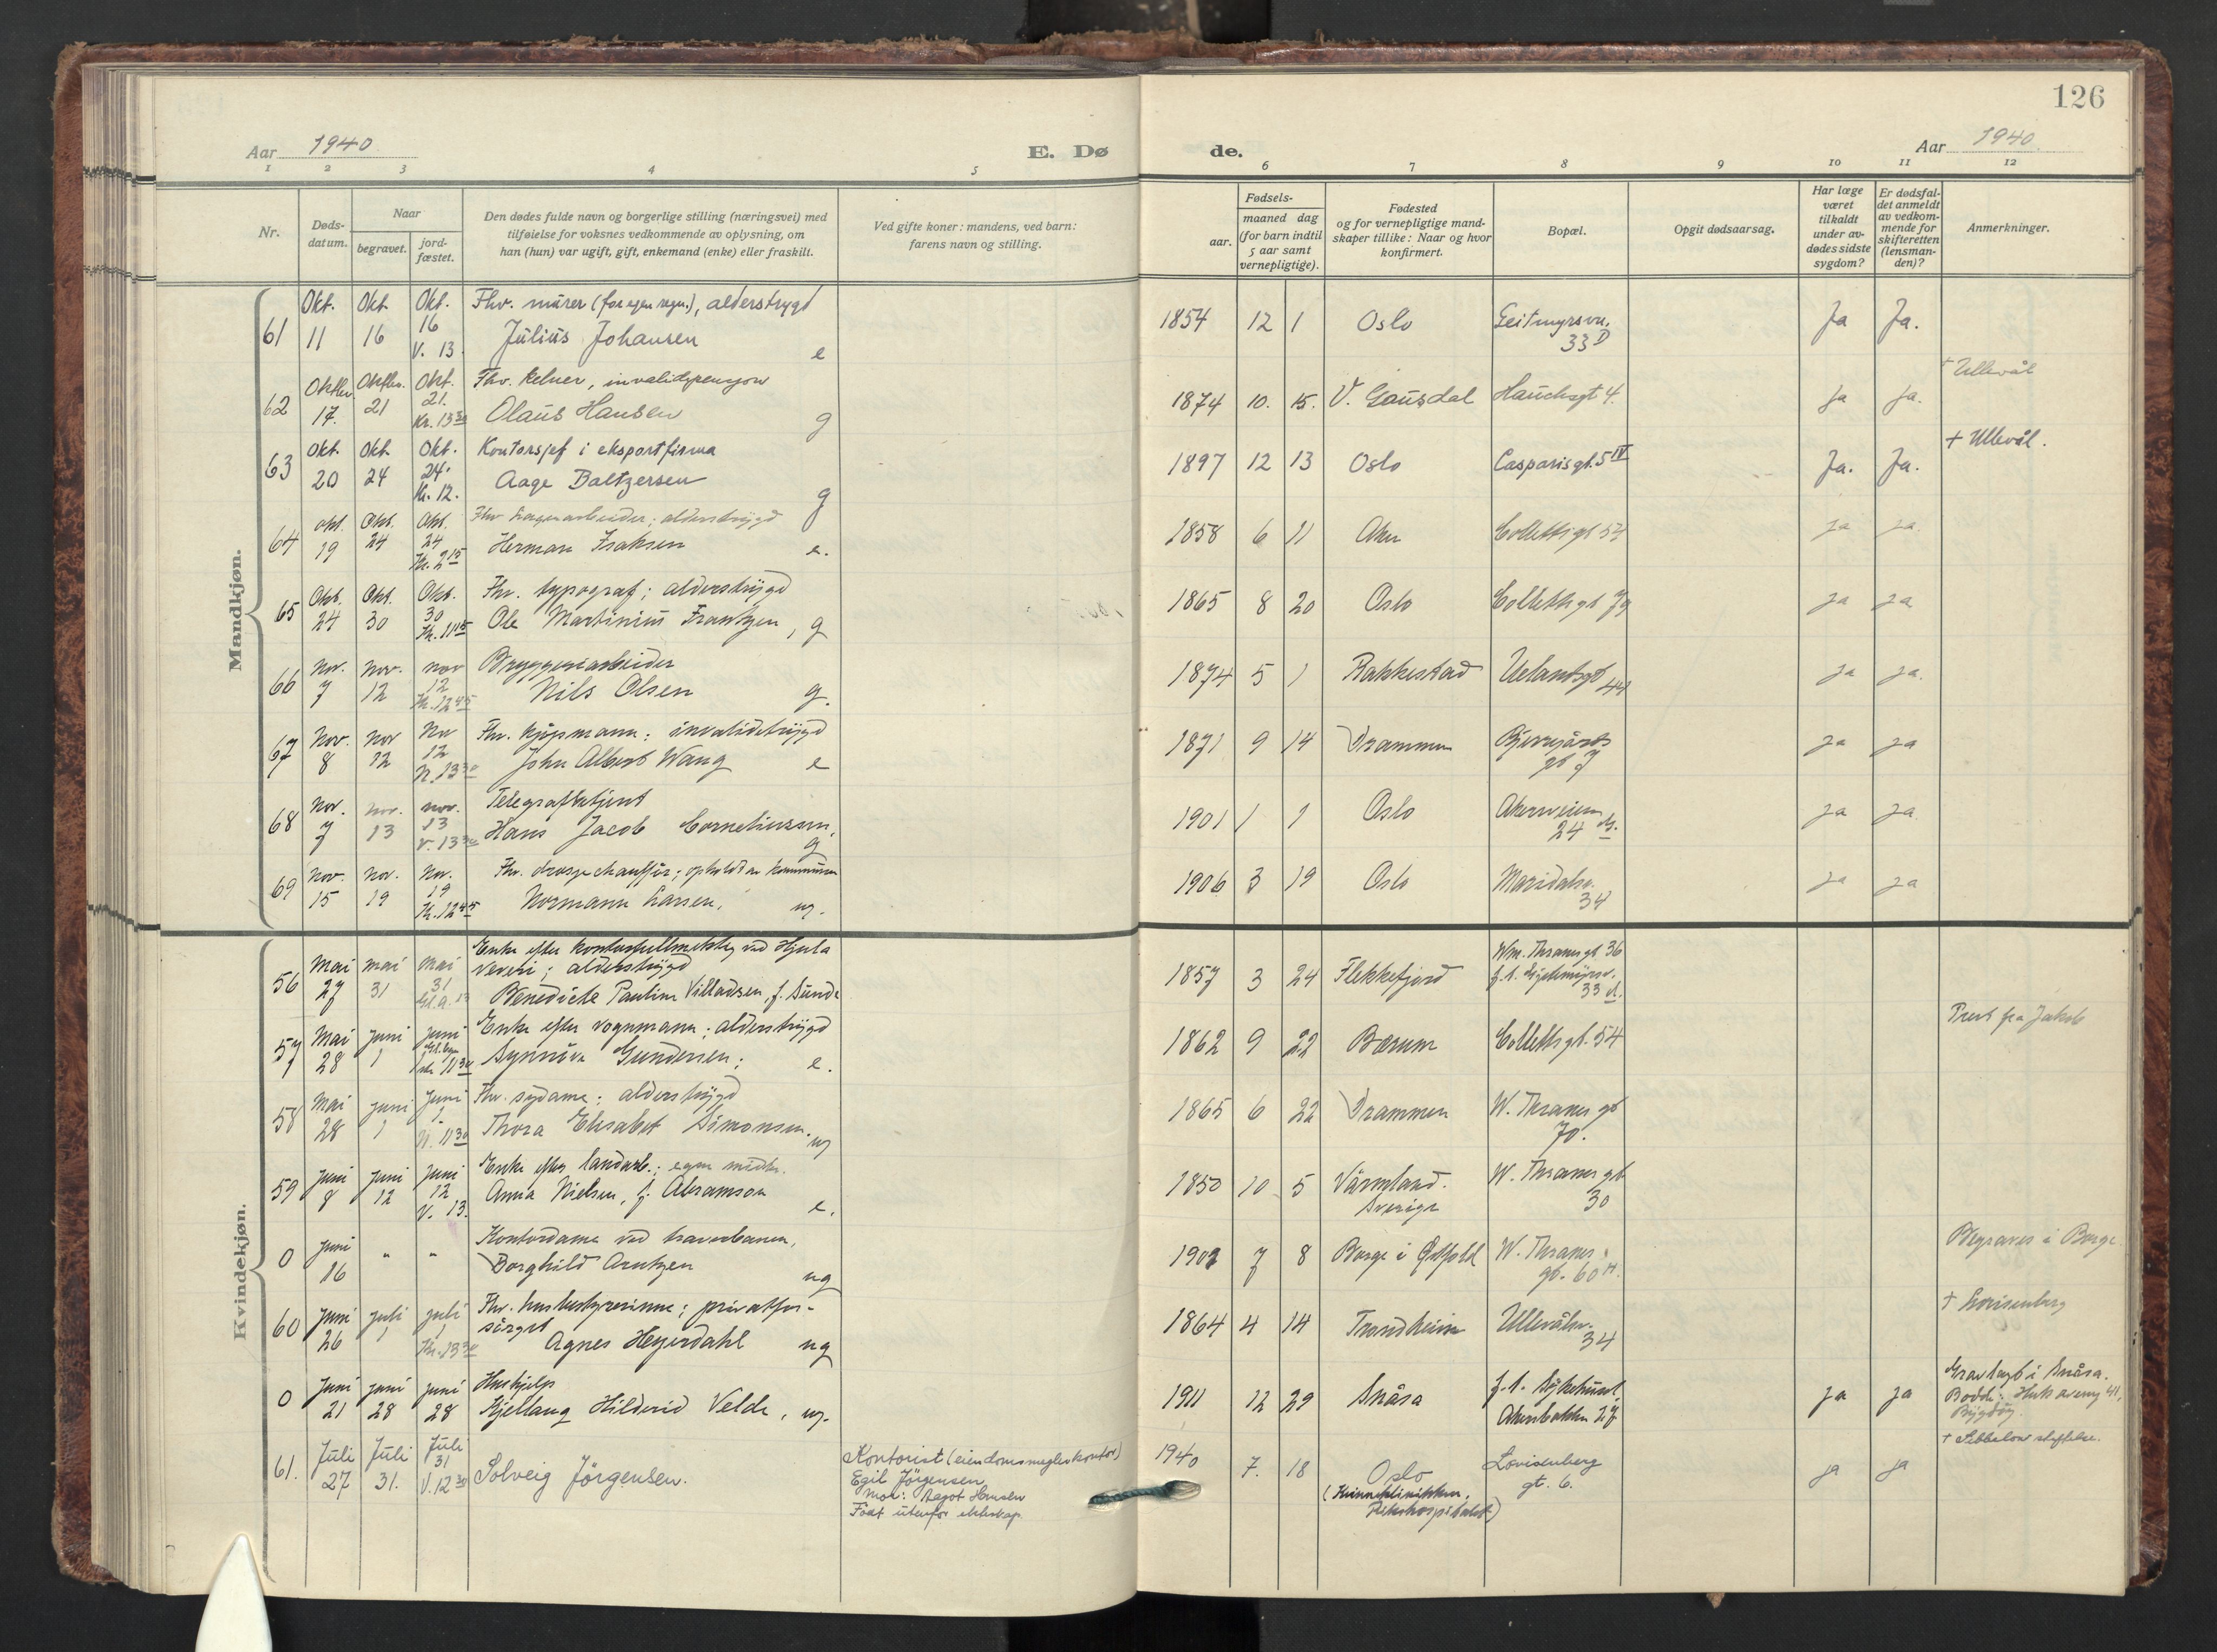 126
Aar 1940
E. Dø de.
Aar 1940.
1 2 3 4 5 6 7 8 9 10 11 12
Nr.
Døds-datum.
Naar
begravet.
jord-fæstet.
Den dødes fulde navn og borgerlige stilling (næringsvei) med
tilføielse for voksnes vedkommende av oplysning, om
han (hun) var ugift, gift, enkemand (enke) eller fraskilt.
Ved gifte koner: mandens, ved barn:
farens navn og stilling.
Fødsels-
aar.
maaned dag
(for barn indtil
5 aar samt
vernepligtige).
Fødested
og for vernepligtige mand-
skaper tillike: Naar og hvor
konfirmert.
Bopæl.
Opgit dødsaarsag.
Har læge
været
tilkaldt
under av-
dødes sidste
sygdom?
Er dødsfal-
det anmeldt
av vedkom-
mende for
skifteretten
(lensman-
den)?
Anmerkninger.
Mandkjøn.
Okt. Okt. Okt. Fhv. mürer (for egen regn.), alderstrygd
61 11 16 16 V. 13. Jülius Johansen e 1854 12 1 Oslo Geitmyrsvn. 33 D Ja Ja.
Oktbr. Oktbr. Okt. Fhv. kelner, invalidpensjon
62 17. 21 21. Kr. 13 30 Olaüs Hansen g 1874 10. 15. V. Gausdal Hauchsgt 4. Ja Ja. † Ullevål
Okt. Okt. Okt. Kontorsjef i eksportfirma
63 20 24 24. Kr. 12. Aage Baltzersen g 1897 12 13 Oslo Casparisgt. 5 IV Ja. Ja. † Ullevål.
Okt. Okt. Okt. Fhv lagerarbeider; alderstrygd
64 19 24 24 Kr. 2 15 Herman Isaksen e. 1858 6 11 Aker Collettsgt 54 ja ja.
Okt. Okt. Okt. Fhv. typograf; alderstrygd
65 24 30 30 Kr. 11 45 Ole Martinius Frantzen, g 1865 8 20 Oslo Collettsgt 79 ja ja
Nov. Nov. nov Bryggeriarbeider
66 7 12 12 Kr. 12 45 Nils Olsen g. 1874 5 1 Rakkestad Uelandsgt 44 ja ja.
Nov. Nov Nov Fhv. kjøpmann; invalidetrygd
67 8 12 12 N. 13 30 John Albert Wang e 1871 9 14 Drammen Bjerregårds gt 7 ja ja
Nov. Nov. nov. Telegrafbetjent
68 7 13 13 V. 13 30 Hans Jacob Corneliussen, g 1901 1 1 Oslo Akersveien 24 ja ja
Nov. Nov. Nov. Fhv. drosjechauffør; opholdt av kommunen
69 15 19 19 Kr. 12 45 Normann Larsen, ug. 1906 3 19 Oslo Maridalsv. 34 ja ja
Kvindekjøn.
Enke efter kontorfullmektig ved Hjula
Mai mai mai veveri; alderstrygd
56 27 31 31 Benedicte Pauline Villadsen, f. Sunde 1857 3 24 Flekkefjord Wm. Thranesgt 36 33
Mai juni juni Enke efter vognmann; alderstrygd
57 28 1 1 11 30 Synnöve Gundersen; e. 1862 9 22 Bærum Collettsgt. 54 Prest fra Jakob
Mai juni juni Fhv. sydame; alderstrygd
58 28 1 1 11 30 Thora Elisabet Simonsen. ug 1865 6 22 Drammen W. Thranes gt 70.
Juni juni juni Enke efter landarb.; egne midler.
59 8 12 12 V. 13. Anna Nielsen, f. Abramson e. 1850 10 5 Värmland. Sverige W. Thranes gt 30
Juni " " Kontordame ved travbanen,
0 16 Borghild Arntzen ug 1902 7 8 Borge i Østfold W. Thranes gt. 60 Begraves i Borge
Juni juli juli Fhv. husbestyrerinne; privatfor-
60 26 1 1 Kr. 13 30 sørget Agnes Heyerdahl ug 1864 4 14 Trondheim Ullevålsv. 34 † Lovisenberg
Juni juni juni Hushjelp
0 21 28 28 Kjellaug Hilderid Velde, ug. 1911 12 29 Snåsa f.t. Sykehuset Akersbakken 27 ja ja Gravlagt i Snåsa. Bodde: Huk aveny 41, Bygdøy.
Juli Juli Juli
61. 27 31. 31 V. 12 30 Solveig Jörgensen. Kontorist (eiendomsmeglerkontor)
Egil Jörgensen
Mor: Aagot Hansen
Født utenfor ekteskap
1940 7. 18 Oslo
(Kvinneklinikken,
Rikshospitalet)
Lovisenberg gt. 6. ja ja † stiftelse.